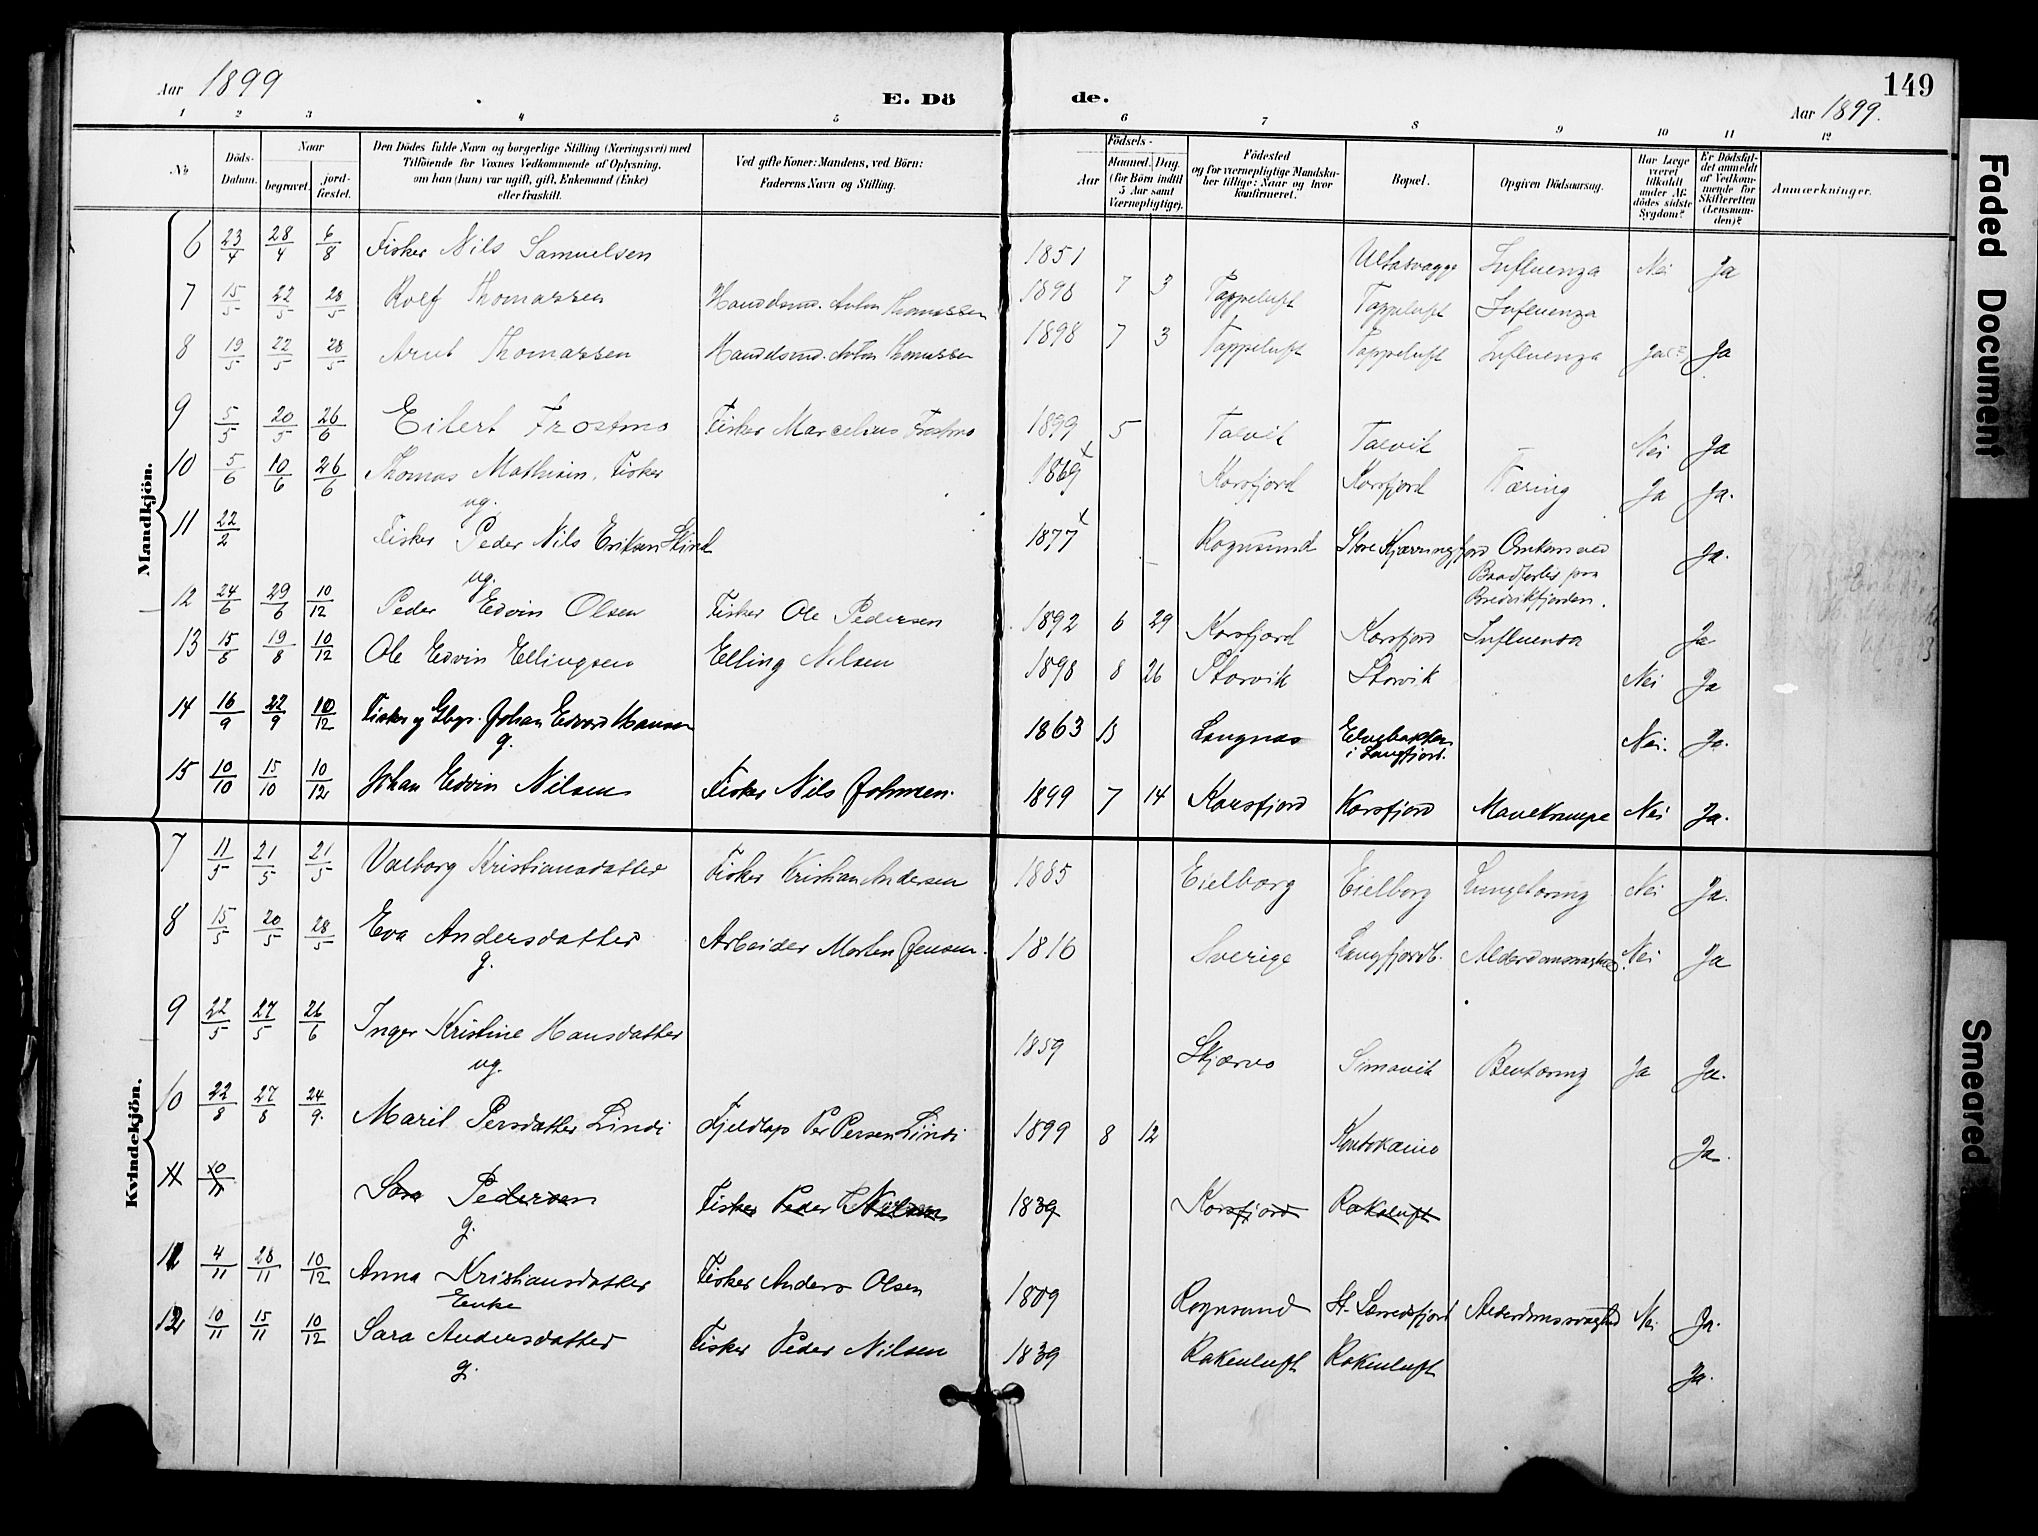 Aar 1899
E. Döde.
149
Aar 1899.
1 2 3 4 5 6 7 8 9 10 11 12
№
Döds-Datum.
Naar
begravet.
jord-fæstet.
Den Dödes fulde Navn og borgerlige Stilling (Næringsvei) med
Tilföiende for Voxnes Vedkommende af Oplysning,
om han (hun) var ugift, gift, Enkemand (Enke)
eller fraskilt.
Ved gifte Koner: Mandens, ved Börn:
Faderens Navn og Stilling.
Födsels-
Aar
Maaned. Dag.
(for Börn indtil
5 Aar samt
Værnepligtige).
Födested
og for værnepligtige Mandsku-
ber tillige: Naar og hvor
konfirmeret.
Bopæl.
Opgiven Dödsaarsag.
Har Læge
været
tilkaldt
under Af-
dödes sidste
Sygdom?
Er Dödsfal-
det anmeldt
af Vedkom-
mende for
Skifteretten
(Lensman-
den)?
Anmærkninger.
Mandkjön.
6 23/4 28/4 6/8 Fisker Nils Samuelsen 1851 Influenza Nei Ja
7 15/5 22/5 28/5 Rolf Thomassen Handelsmd. Anton Thomassen 1898 7 3 Tappeluft Tappeluft Influenza
8 19/5 22/5 28/5 Arnt Thomassen Handelsmd. Anton Thomassen 1898 7 3 Tappeluft Tappeluft Influenza Ja Ja
9 5/5 20/5 26/6 Eilert Frostmo Fisker Marcelius Frostmo 1899 5 Talvik Talvik — Nei Ja
10 5/6 10/6 26/6 Thomas Mathisen, Fisker 1869 Korsfjord Korsfjord Tæring Ja Ja.
ug.
11 22/2 Fisker Peder Nils Eriksen 1877 Rognsund Store Kjærringfjord Omkom ved Ja.
ug. Baadforlis paa
Bredvikfjorden.
12 24/6 29/6 10/12 Peder Edvin Olsen Fisker Ole Pedersen 1892 6 29 Korsfjord Korsfjord Influenza Ja
13 15/8 19/8 10/12 Ole Edvin Ellingsen Elling Nilsen 1898 8 26 Storvik Storvik Nei Ja
14 16/9 22/9 10/12 Fisker og Gbgr. Johan Edvard Hansen 1863 Langnæs Elvebakken Nei. Ja.
g. i Langfjord.
15 10/10 15/10 10/12 Johan Edvin Nilsen Fisker Nils Johnsen. 1899 7 14 Korsfjord Korsfjord Mavekrampe Nei Ja.
Kvindekjön.
7 11/5 21/5 21/5 Valborg Kristiansdatter Fisker Kristian Andersen 1885 Eielborg Eielborg Lungetæring Nei Ja.
8 15/5 20/5 28/5 Eva Andersdatter Arbeider Morten Jensen. 1816 Sverige Langfjordb. Alderdomssvaghed. Nei Ja
g.
9 22/5 27/5 26/6 Inger Kristine Hansdatter 1859 Skjærvø Simavik Bentæring Ja Ja.
ug.
10 22/8 27/8 24/9. Marit Persdatter Lindi Fjeldlap Per Persen Lindi 1899 8 12 Koutokæino Ja.
11 10/11 Sara Pedersen Fisker Peder Nilsen 1839 Korsfjord Rakeluft
g.
11 4/11 28/11 10/12 Anna Kristiansdatter Fisker Anders Olsen 1809 Rognsund St. Lerredsfjord Alderdomssvaghed Nei Ja.
Enke
12 10/11 15/11 10/12 Sara Andersdatter Fisker Peder Nilsen 1839 Rakenluft Rakenluft Ja.
g.
Faded Document
Smeared